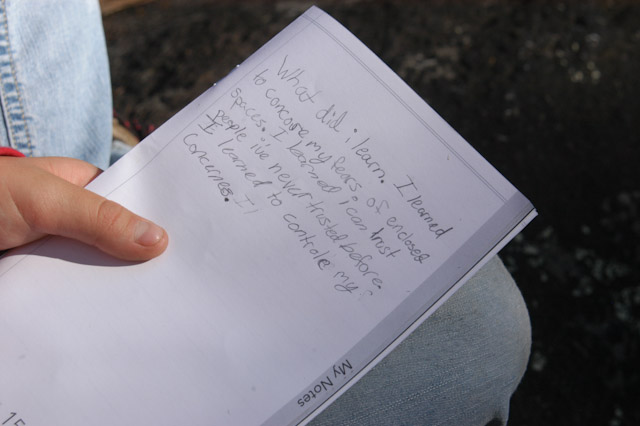 What did i learn. I learned
to concoure my fears of enclosed
spaces. I learned i can trust
people i've never trusted before.
I learned to controle my
Concurnes.
My Notes
15